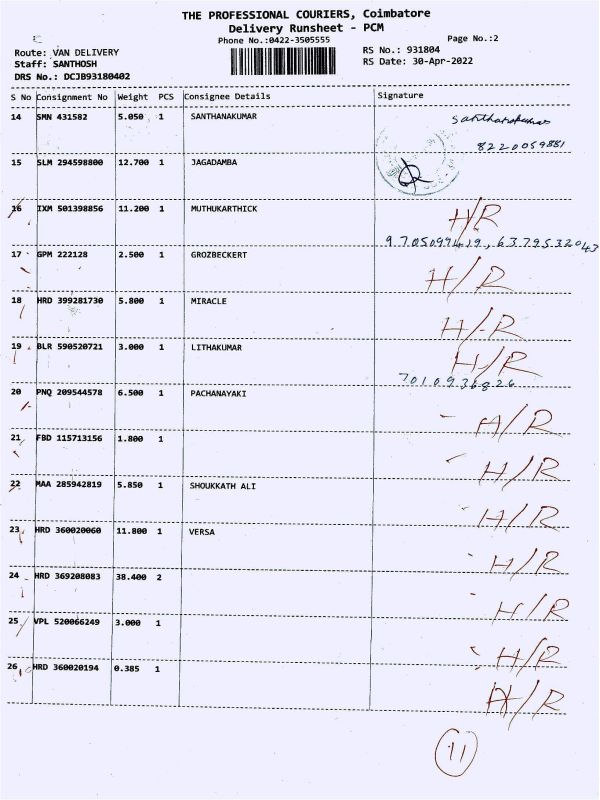 THE PROFESSIONAL COURIERS, Coimbatore
Delivery Runsheet - PCM
Phone No.:0422-3505555
Page No.:2
Route: VAN DELIVERY
RS No.: 931804
Staff: SANTHOSH
RS Date: 30-Apr-2022
DRS No.: DCJB93180402
S No Consignment No Weight PCS Consignee Details Signature
14 SMN 431582 5.050 1 SANTHANAKUMAR
8220059881
15 SLM 294598800 12.700 1 JAGADAMBA
16 IXM 501398856 11.200 1 MUTHUKARTHICK H/R
17 GPM 222128 2.500 1 GROZBECKERT H/R
18 HRD 399281730 5.800 1 MIRACLE H/R
19 BLR 590520721 3.000 1 LITHAKUMAR H/R
7010936826
20 PNQ 209544578 6.500 1 PACHANAYAKI H/R
21 FBD 115713156 1.800 1 H/R
22 MAA 285942819 5.850 1 SHOUKKATH ALI H/R
23 HRD 360020060 11.800 1 VERSA H/R
24 HRD 369208083 38.400 2 H/R
25 VPL 520066249 3.000 1 H/R
26 HRD 360020194 0.385 1 H/R
11